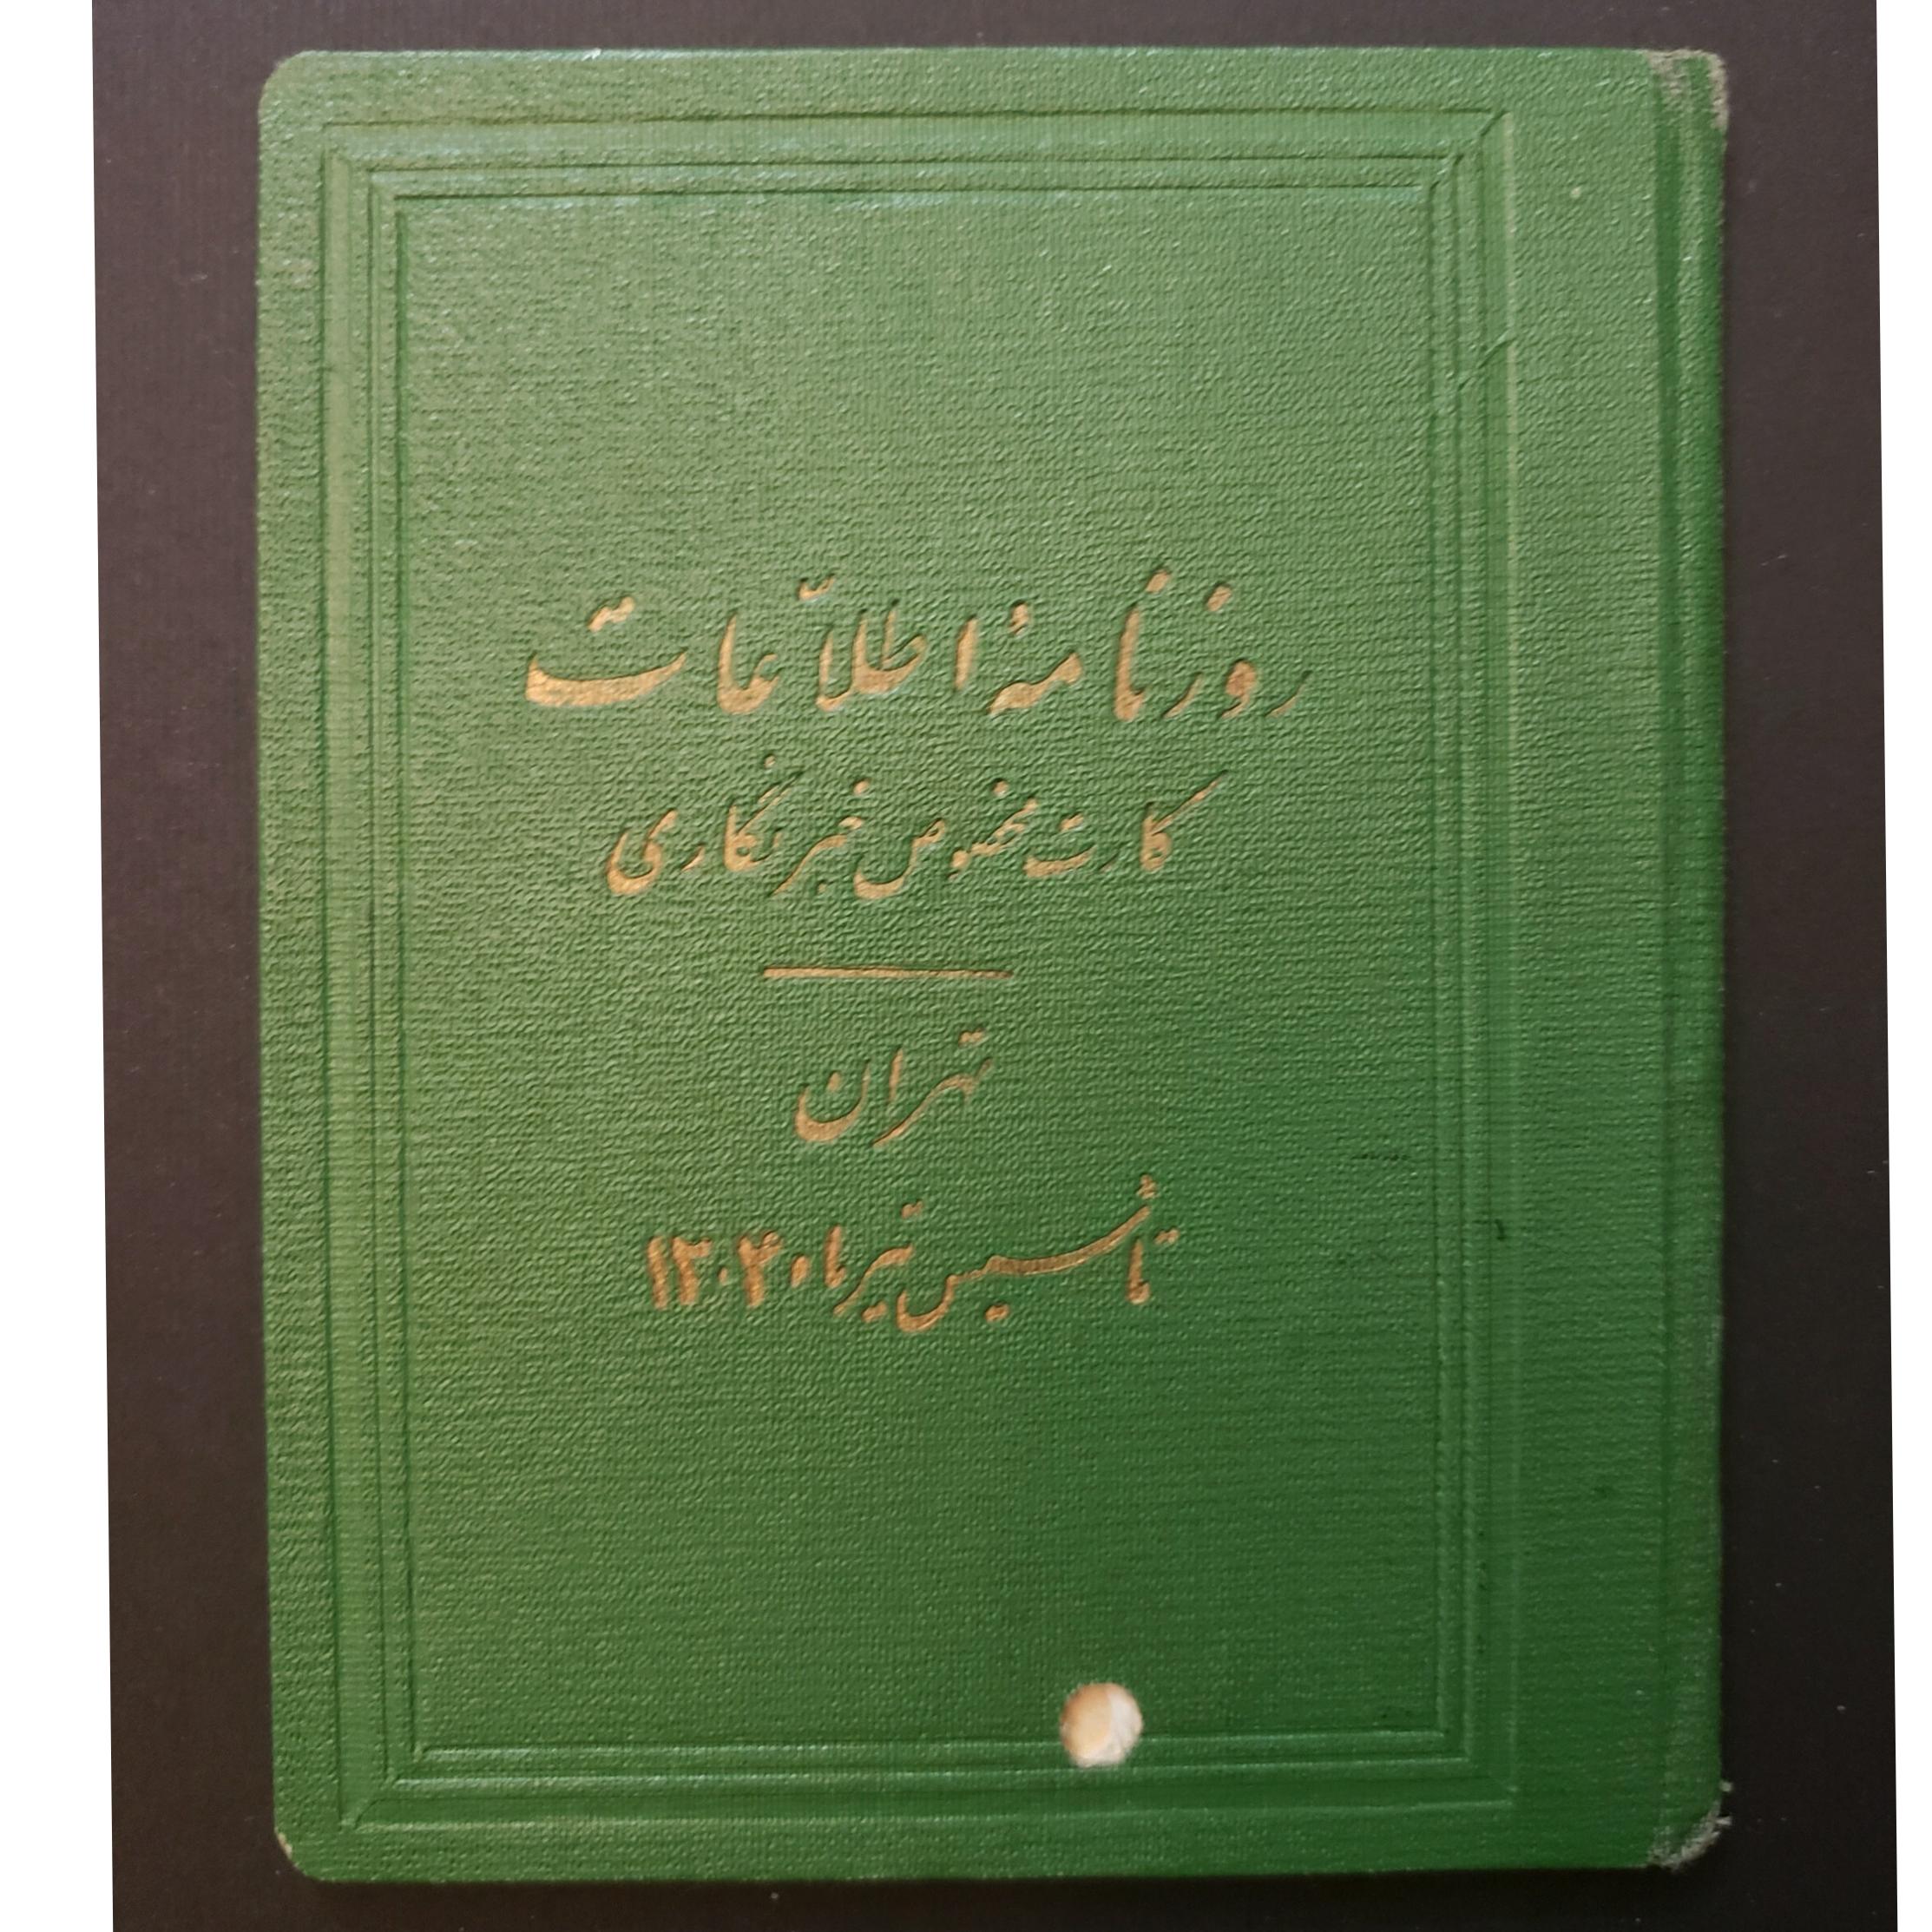 روزنامهٔ اطلاّعات
کارت مخصوص خبرنگاری
تهران
تأسیس تیرماه ۱۳۰۴